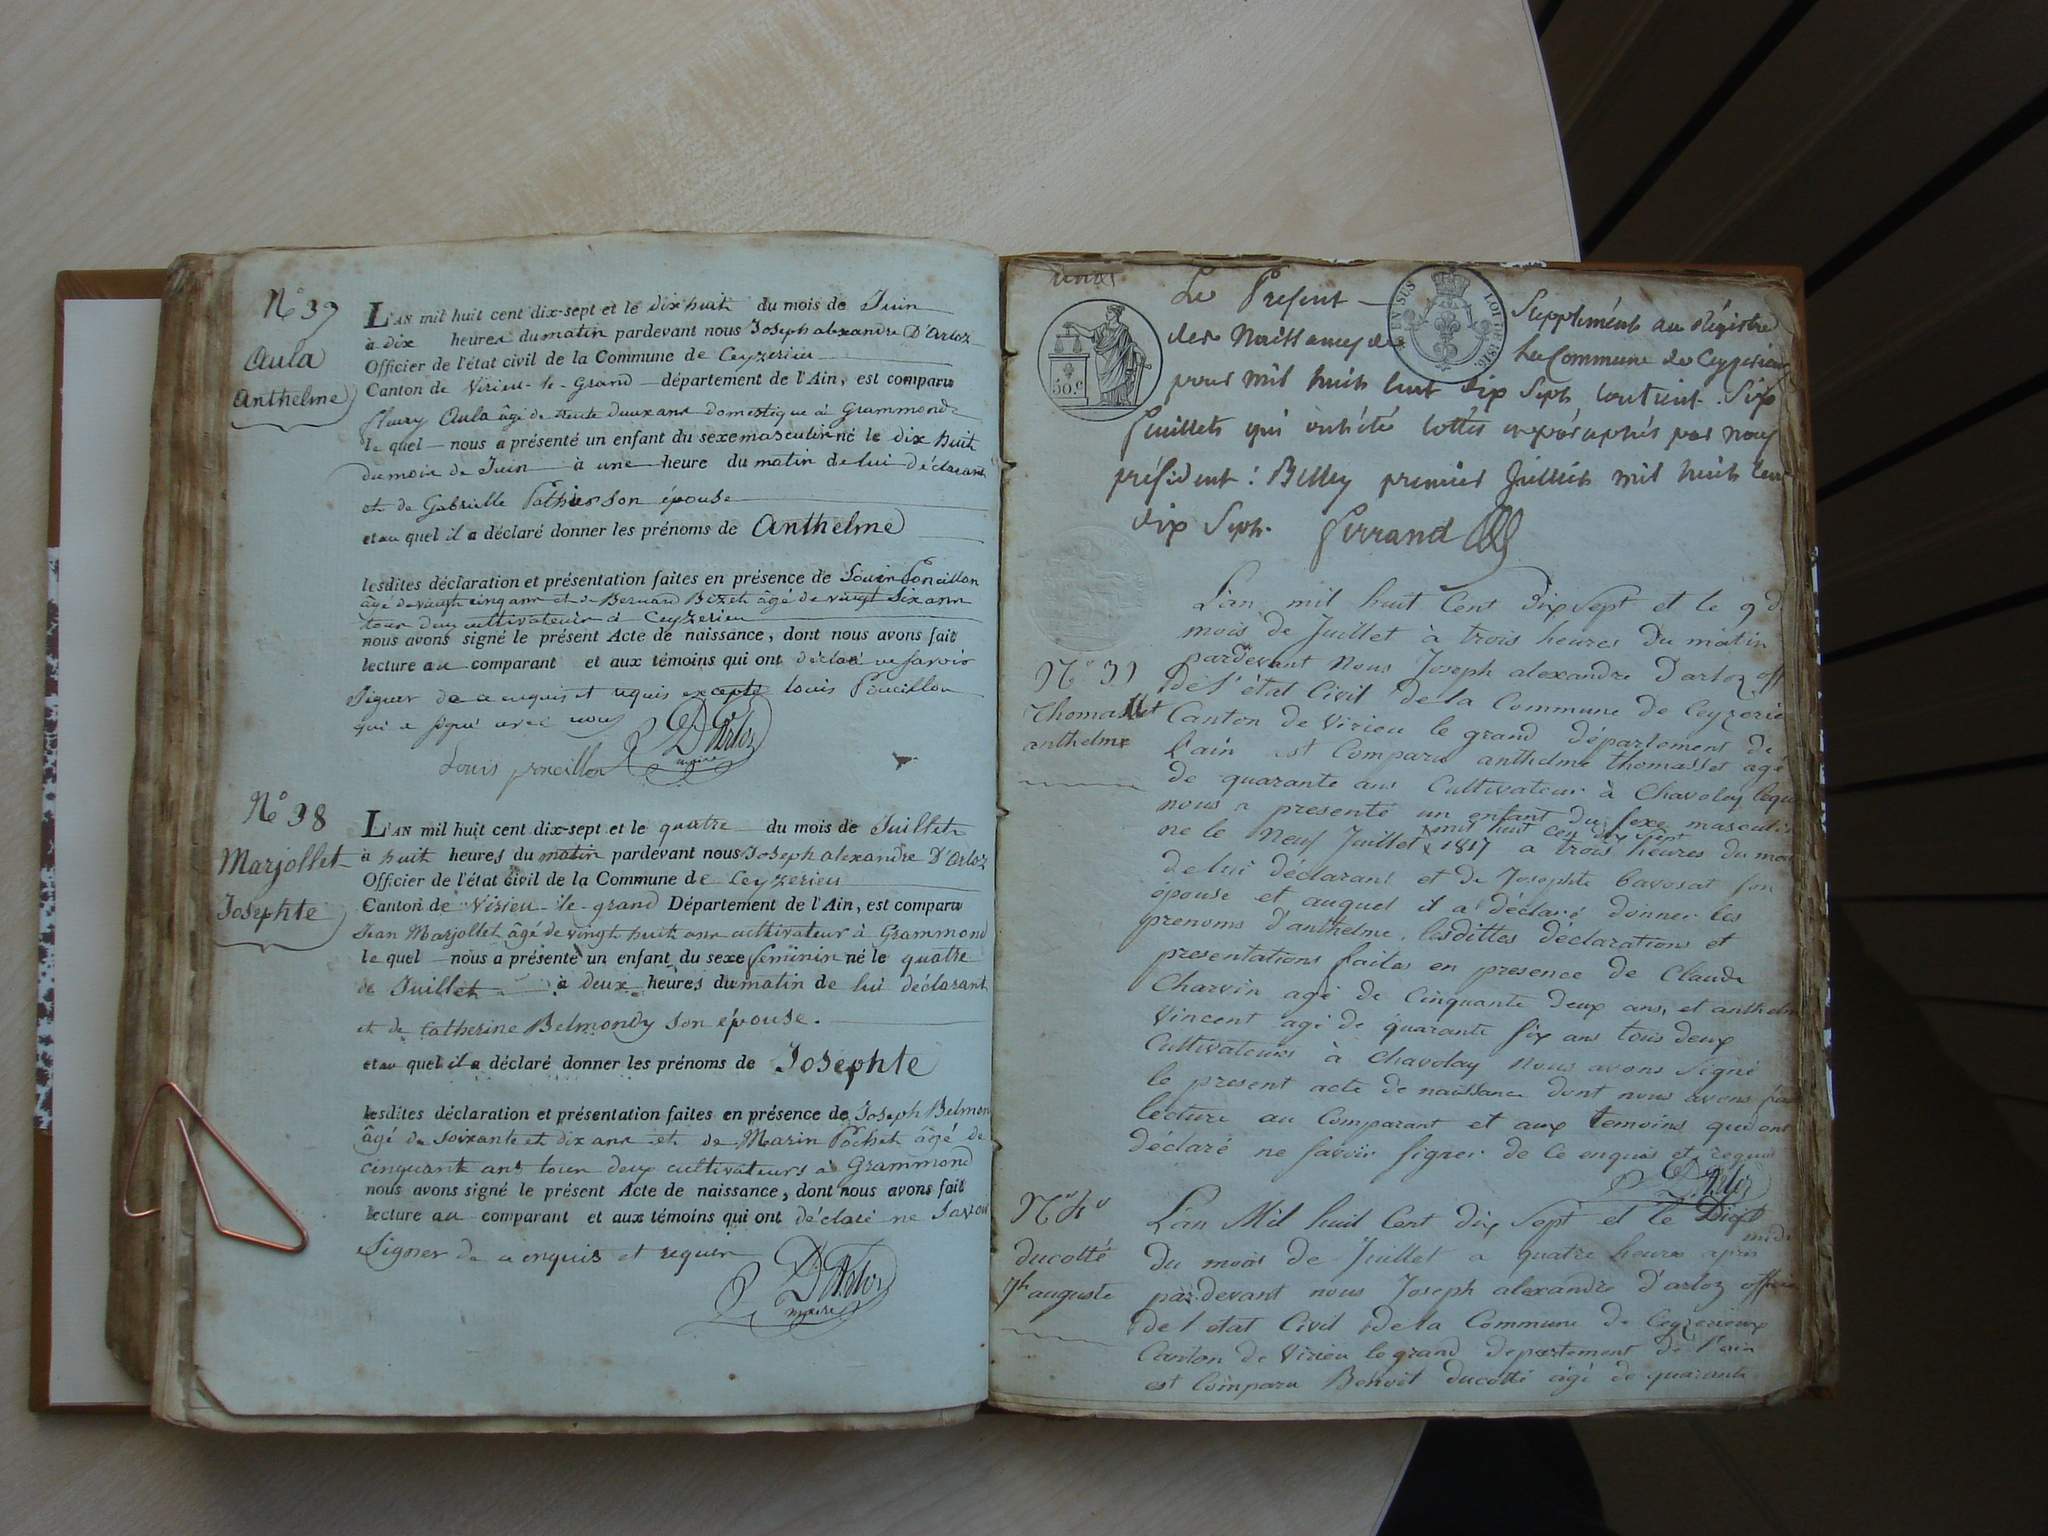 N° 37
Aula
Anthelme
L'AN mil huit cent dix-sept et le dix huit du mois de Juin
à dix heures du matin pardevant nous Joseph alexandre D'Arloz
Officier de l'état civil de la Commune de Ceyzerieu
Canton de Virieu-le-Grand département de l'Ain, est comparu
fleury Aula âgé de trente deux ans domestique à Grammond
le quel nous a présenté un enfant du sexe masculin né le dix huit
du mois de Juin à une heure du matin de lui déclarant
et de Gabrielle son épouse
et au quel il a déclaré donner les prénoms de Anthelme
lesdites déclaration et présentation faites en présence de Louis Poncillon
âgé de vingt cinq ans et de Bernard Bizet âgé de vingt six ans
tous deux cultivateurs à Ceyzerieu
nous avons signé le présent Acte de naissance, dont nous avons fait
lecture au comparant et aux témoins qui ont déclaré ne savoir
signer de ce enquis et requis excepté louis Poncillon
qui a signé avec nous
D'Arloz
maire
Louis poncillon
N° 38
Marjollet
Josephte
L'AN mil huit cent dix-sept et le quatre du mois de Juillet
à huit heures du matin pardevant nous Joseph alexandre D'Arloz
Officier de l'état civil de la Commune de Ceyzerieu
Canton de Virieu-le-grand Département de l'Ain, est comparu
Jean Marjollet âgé de vingt huit ans cultivateur à Grammond
le quel nous a présenté un enfant du sexe féminin né le quatre
de Juillet à deux heures du matin de lui déclarant
et de Catherine Belmondy son épouse.
et au quel il a déclaré donner les prénoms de Josephte
lesdites déclaration et présentation faites en présence de Joseph Belmon
âgé de soixante et dix ans et de Marin Pochet âgé de
cinquante ans tous deux cultivateurs à Grammond
nous avons signé le présent Acte de naissance, dont nous avons fait
lecture au comparant et aux témoins qui ont déclaré ne savoir
signer de ce enquis et requis
D'Arloz
maire
Le Présent Supplément au Régistre
des Naissances de la Commune de Ceyzerieu
pour mil huit cent dix Sept contient Six
feuillets qui ont été cottés et paraphés par nous
président : Belley premier Juillet mil huit cent
dix Sept. Ferrand
50.c
EN SUS
LOI DE 1816
N° 39
Thomasset
anthelme
L'an mil huit Cent dix Sept et le 9 d
mois de Juillet à trois heures du matin
pardevant nous Joseph alexandre D'arloz off
de l'état Civil de la Commune de Ceyzerie
Canton de Virieu le grand département de
l'ain est Comparu anthelme thomasset agé
de quarante ans Cultivateur à Chavoley lequ
nous a presenté un enfant du sexe masculin
mil huit cen dix sept
né le Neuf Juillet 1817 a trois heures du mat
de lui déclarant et de Josephte Cavosat son
épouse et auquel il a déclaré donner les
prenoms d'anthelme, lesdittes déclarations et
presentations faites en presence de Claude
Charvin agé de Cinquante deux ans, et anthelm
Vincent agé de quarante six ans tous deux
Cultivateurs à Chavolay nous avons signé
le present acte de naissance dont nous avons fait
lecture au Comparant et aux temoins qui ont
déclaré ne savoir signer de Ce enquis et requis
D'Arloz
N° 40
ducotté
auguste
L'an Mil huit Cent dix Sept et le Dix
du mois de Juillet a quatre heures après midi
par devant nous Joseph alexandre D'arloz officie
de l'état Civil de la Commune de Ceyzerieux
Canton de Virieu le grand departement de l'ain
est Comparu Benoit ducotté âgé de quarante